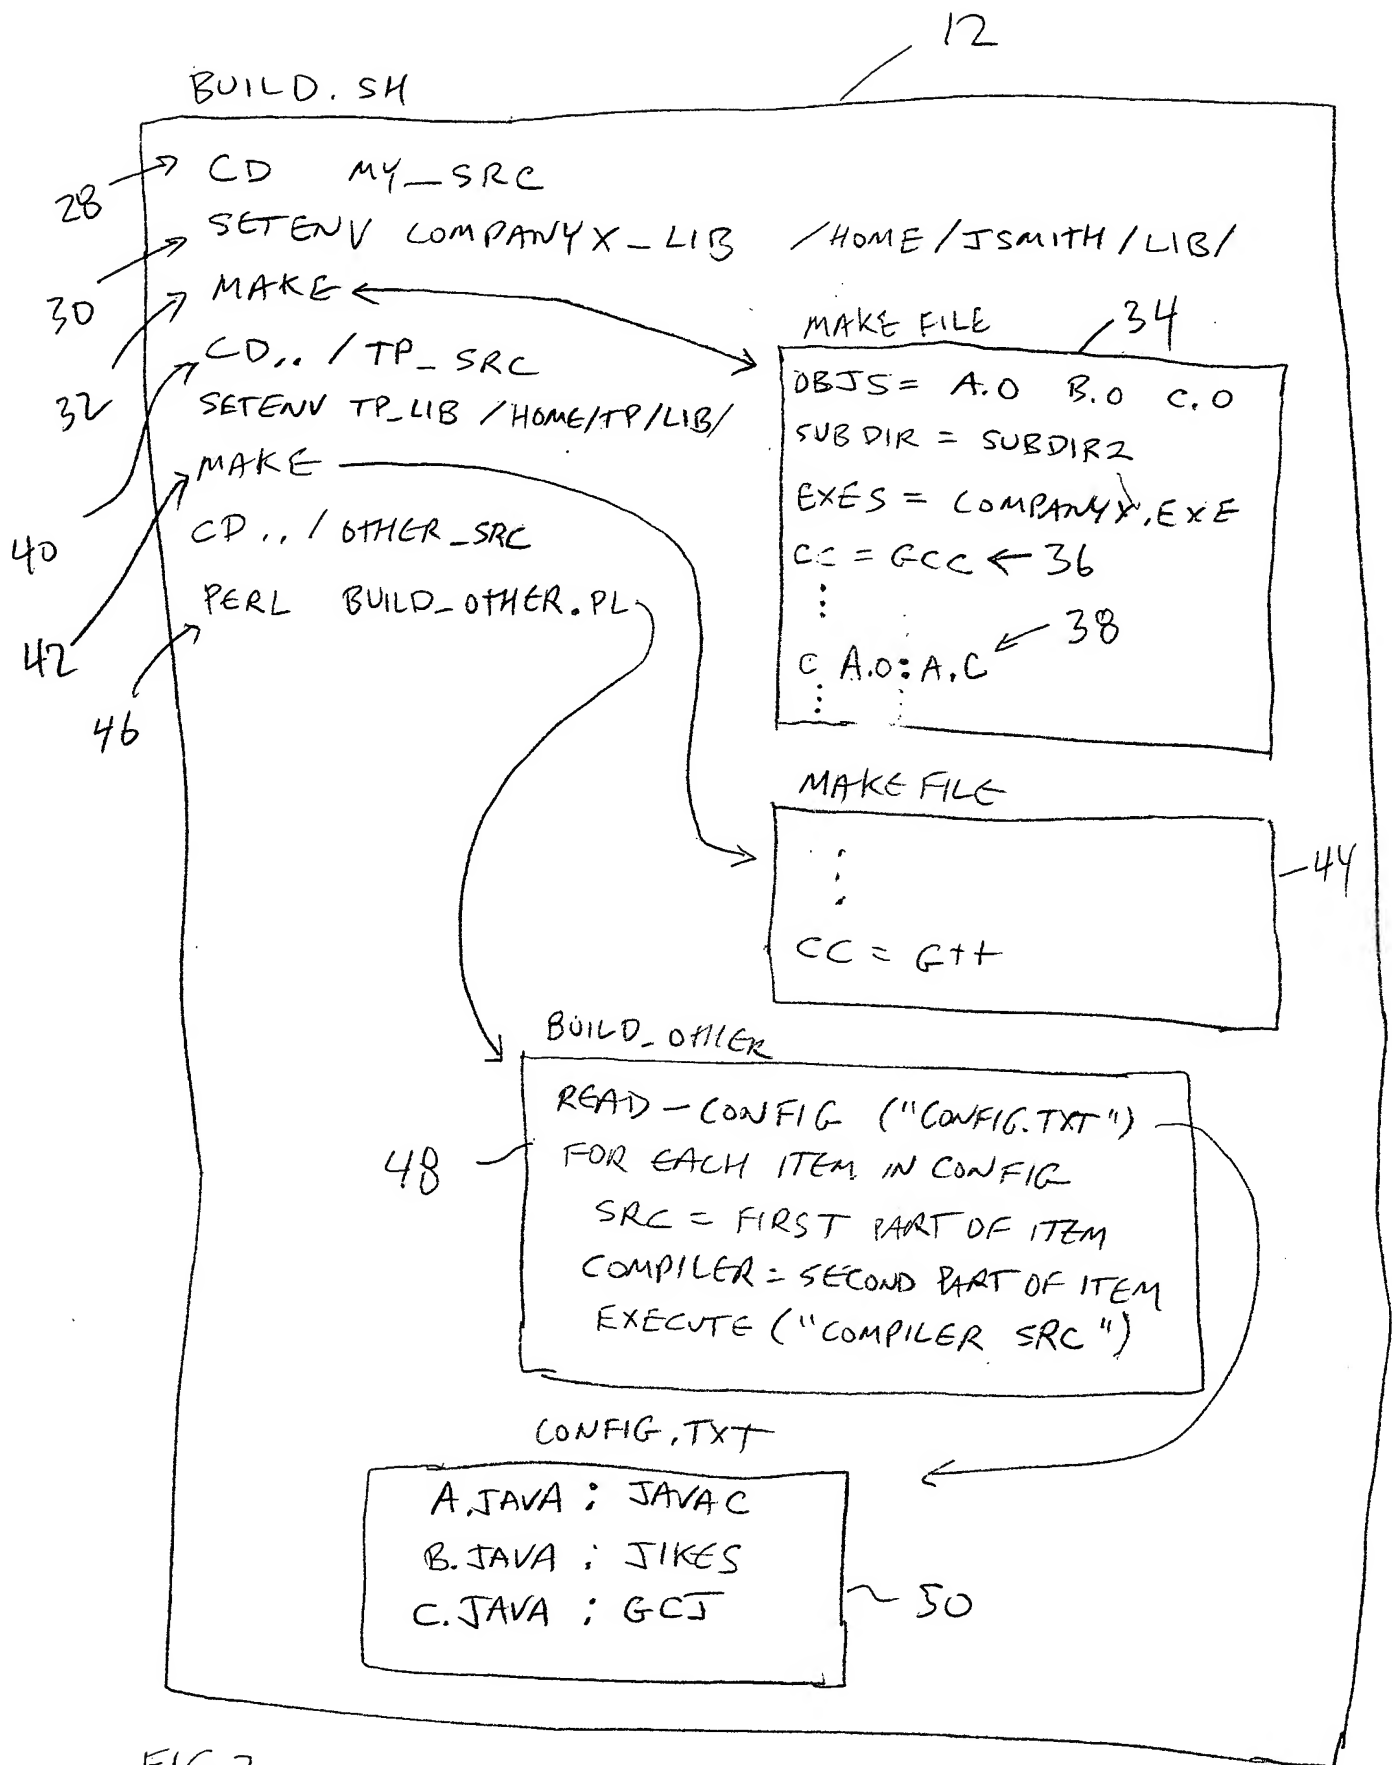 12
BUILD.SH
28
CD MY_SRC
30
SETENV COMPANYX_LIB /HOME/JSMITH/LIB/
32
MAKE
40
CD../TP_SRC
SETENV TP_LIB /HOME/TP/LIB/
42
MAKE
CD../OTHER_SRC
46
PERL BUILD_OTHER.PL
MAKE FILE
34
OBJS= A.O B.O C.O
SUBDIR = SUBDIR2
EXES = COMPANYX.EXE
CC = GCC ← 36
⋮
38
C A.O:A.C
⋮
MAKE FILE
44
⋮
CC = G++
BUILD_OTHER
48
READ-CONFIG ("CONFIG.TXT")
FOR EACH ITEM IN CONFIG
SRC = FIRST PART OF ITEM
COMPILER = SECOND PART OF ITEM
EXECUTE ("COMPILER SRC")
CONFIG.TXT
A.JAVA : JAVAC
B.JAVA : JIKES
C.JAVA : GCJ
50